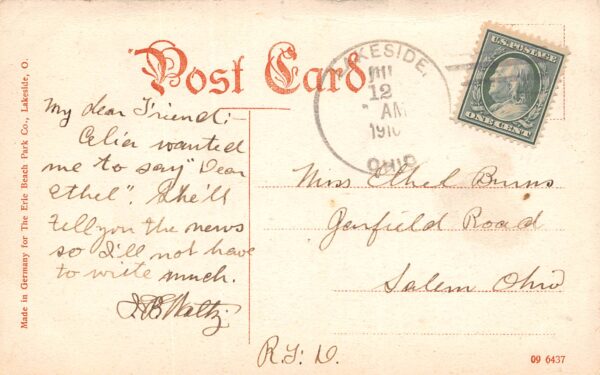 Post Card
Made in Germany for The Erie Beach Park Co., Lakeside, O.
LAKESIDE,
JUL
12
AM
1910
OHIO
U.S. POSTAGE
ONE CENT
My dear Friend:-
Celia wanted
me to say "Dear
Ethel". She'll
tell you the news
so I'll not have
to write much.
Miss Ethel Burns
Garfield Road
Salem Ohio
R.F.D.
09 6437